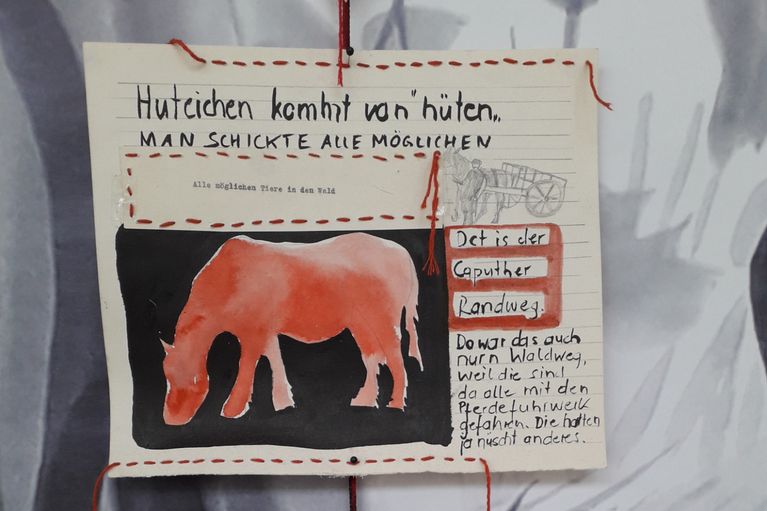 Huteichen kommt von "hüten„
MAN SCHICKTE ALLE MÖGLICHEN
Alle möglichen Tiere in den Wald
Det is der
Caputher
Randweg.
Da war das auch
nur n Waldweg,
weil die sind
da alle mit den
Pferdefuhrwerk
gefahren. Die hatten
ja nüscht anderes.